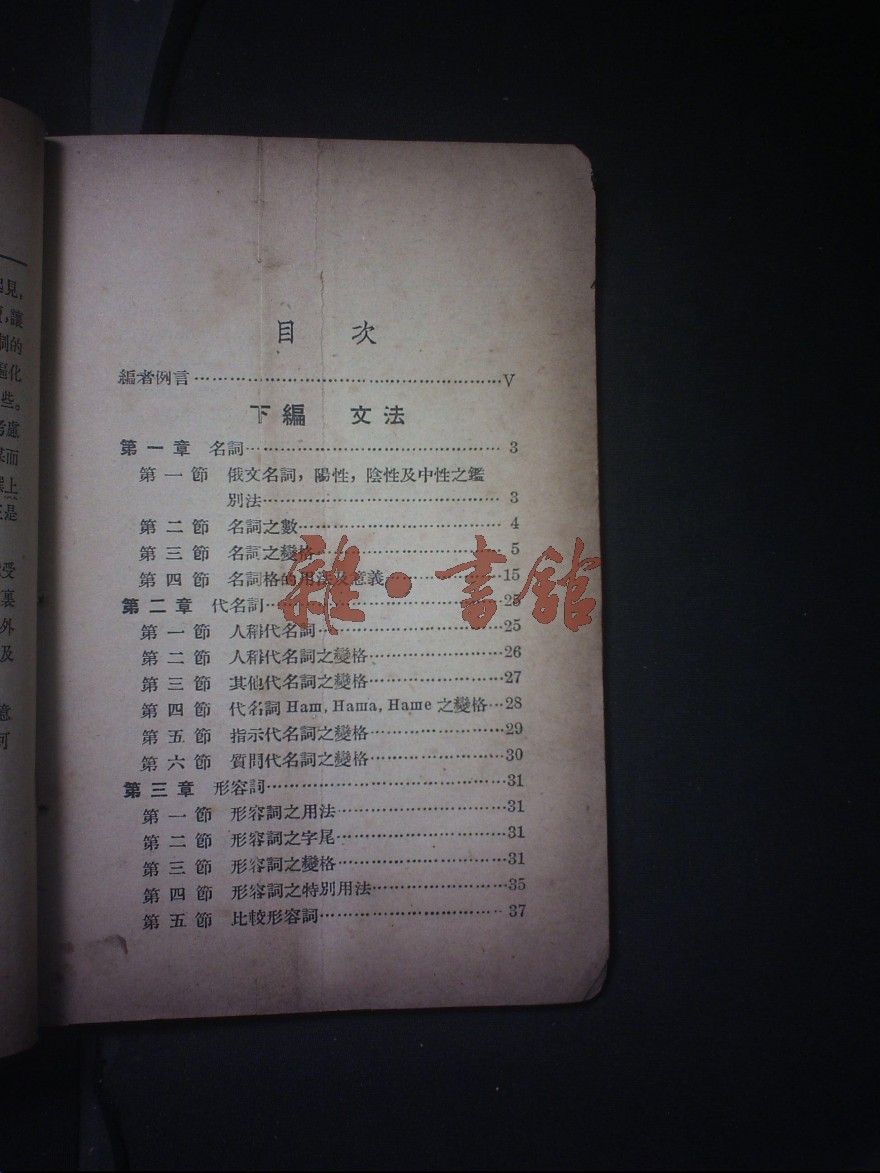 目 次
編者例言…………………………………………V
下編 文法
第一章 名詞…………………………………… 3
第一節 俄文名詞,陽性,陰性及中性之鑑
別法…………………………………… 3
第二節 名詞之數…………………………… 4
第三節 名詞之變格………………………… 5
第四節 名詞格的用法及意義……………15
第二章 代名詞…………………………………25
第一節 人稱代名詞…………………………25
第二節 人稱代名詞之變格…………………26
第三節 其他代名詞之變格…………………27
第四節 代名詞 Наш, Наша, Наше 之變格…28
第五節 指示代名詞之變格…………………29
第六節 質問代名詞之變格…………………30
第三章 形容詞…………………………………31
第一節 形容詞之用法………………………31
第二節 形容詞之字尾………………………31
第三節 形容詞之變格………………………31
第四節 形容詞之特別用法…………………35
第五節 比較形容詞…………………………37
雜·書館
見,
,讓
的
化
些。
慮
而
上
是
受
裏
外
及
意
可